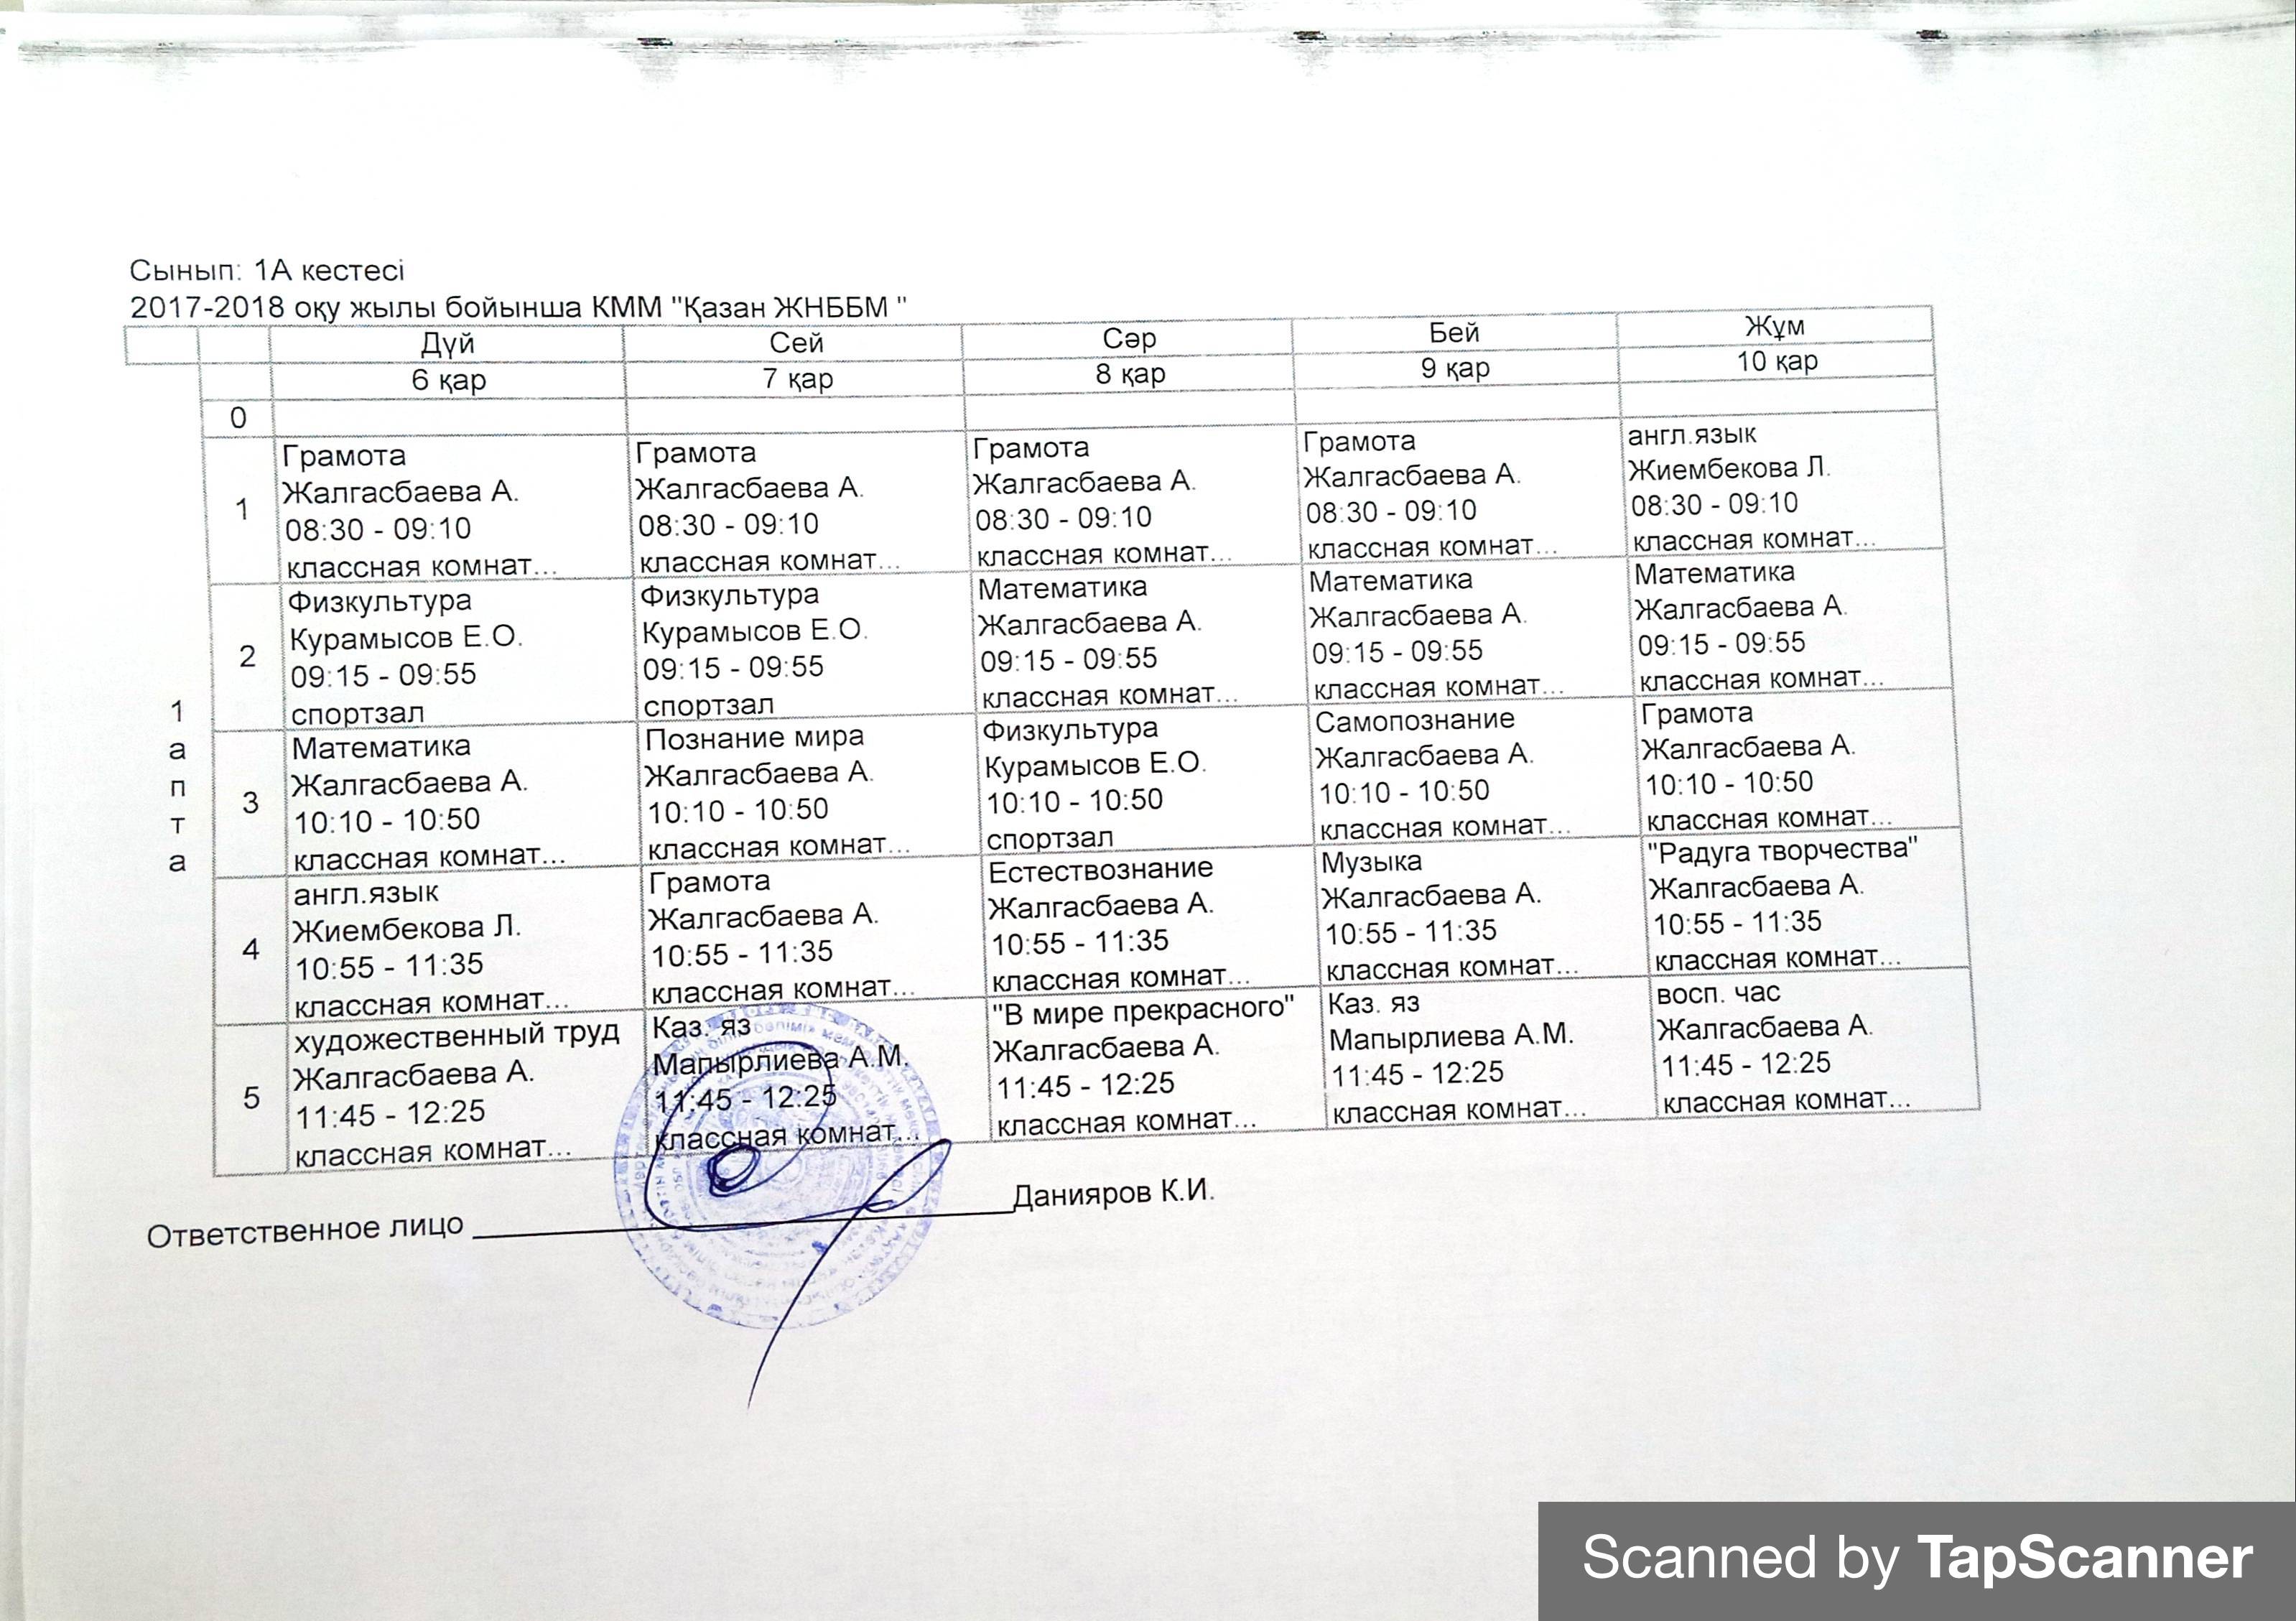 Сынып: 1А кестесі
2017-2018 оқу жылы бойынша КММ "Қазан ЖНББМ "
Дүй Сей Сәр Бей Жұм
6 қар 7 қар 8 қар 9 қар 10 қар
0
1 апта
1
Грамота
Жалгасбаева А.
08:30 - 09:10
классная комнат...
Грамота
Жалгасбаева А.
08:30 - 09:10
классная комнат...
Грамота
Жалгасбаева А.
08:30 - 09:10
классная комнат...
Грамота
Жалгасбаева А.
08:30 - 09:10
классная комнат...
англ.язык
Жиембекова Л.
08:30 - 09:10
классная комнат...
2
Физкультура
Курамысов Е.О.
09:15 - 09:55
спортзал
Физкультура
Курамысов Е.О.
09:15 - 09:55
спортзал
Математика
Жалгасбаева А.
09:15 - 09:55
классная комнат...
Математика
Жалгасбаева А.
09:15 - 09:55
классная комнат...
Математика
Жалгасбаева А.
09:15 - 09:55
классная комнат...
3
Математика
Жалгасбаева А.
10:10 - 10:50
классная комнат...
Познание мира
Жалгасбаева А.
10:10 - 10:50
классная комнат...
Физкультура
Курамысов Е.О.
10:10 - 10:50
спортзал
Самопознание
Жалгасбаева А.
10:10 - 10:50
классная комнат...
Грамота
Жалгасбаева А.
10:10 - 10:50
классная комнат...
4
англ.язык
Жиембекова Л.
10:55 - 11:35
классная комнат...
Грамота
Жалгасбаева А.
10:55 - 11:35
классная комнат...
Естествознание
Жалгасбаева А.
10:55 - 11:35
классная комнат...
Музыка
Жалгасбаева А.
10:55 - 11:35
классная комнат...
"Радуга творчества"
Жалгасбаева А.
10:55 - 11:35
классная комнат...
5
художественный труд
Жалгасбаева А.
11:45 - 12:25
классная комнат...
Каз. яз
Мапырлиева А.М.
11:45 - 12:25
классная комнат...
"В мире прекрасного"
Жалгасбаева А.
11:45 - 12:25
классная комнат...
Каз. яз
Мапырлиева А.М.
11:45 - 12:25
классная комнат...
восп. час
Жалгасбаева А.
11:45 - 12:25
классная комнат...
Ответственное лицо Данияров К.И.
Scanned by TapScanner